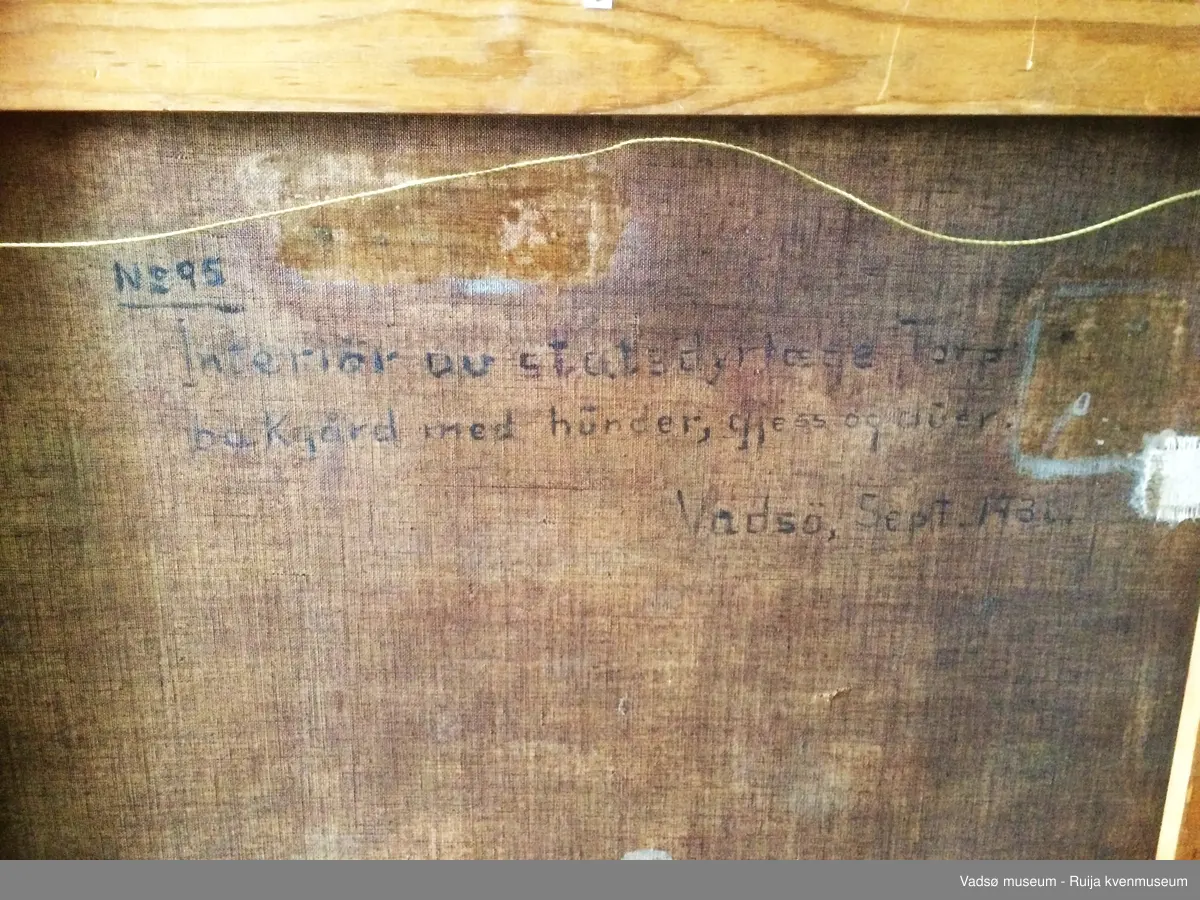 № 95
Interiör av statsdyrlæge Torp
bakgård med hünder, gjess og
Vadsö, Sept.
Vadsø museum - Ruija kvenmuseum